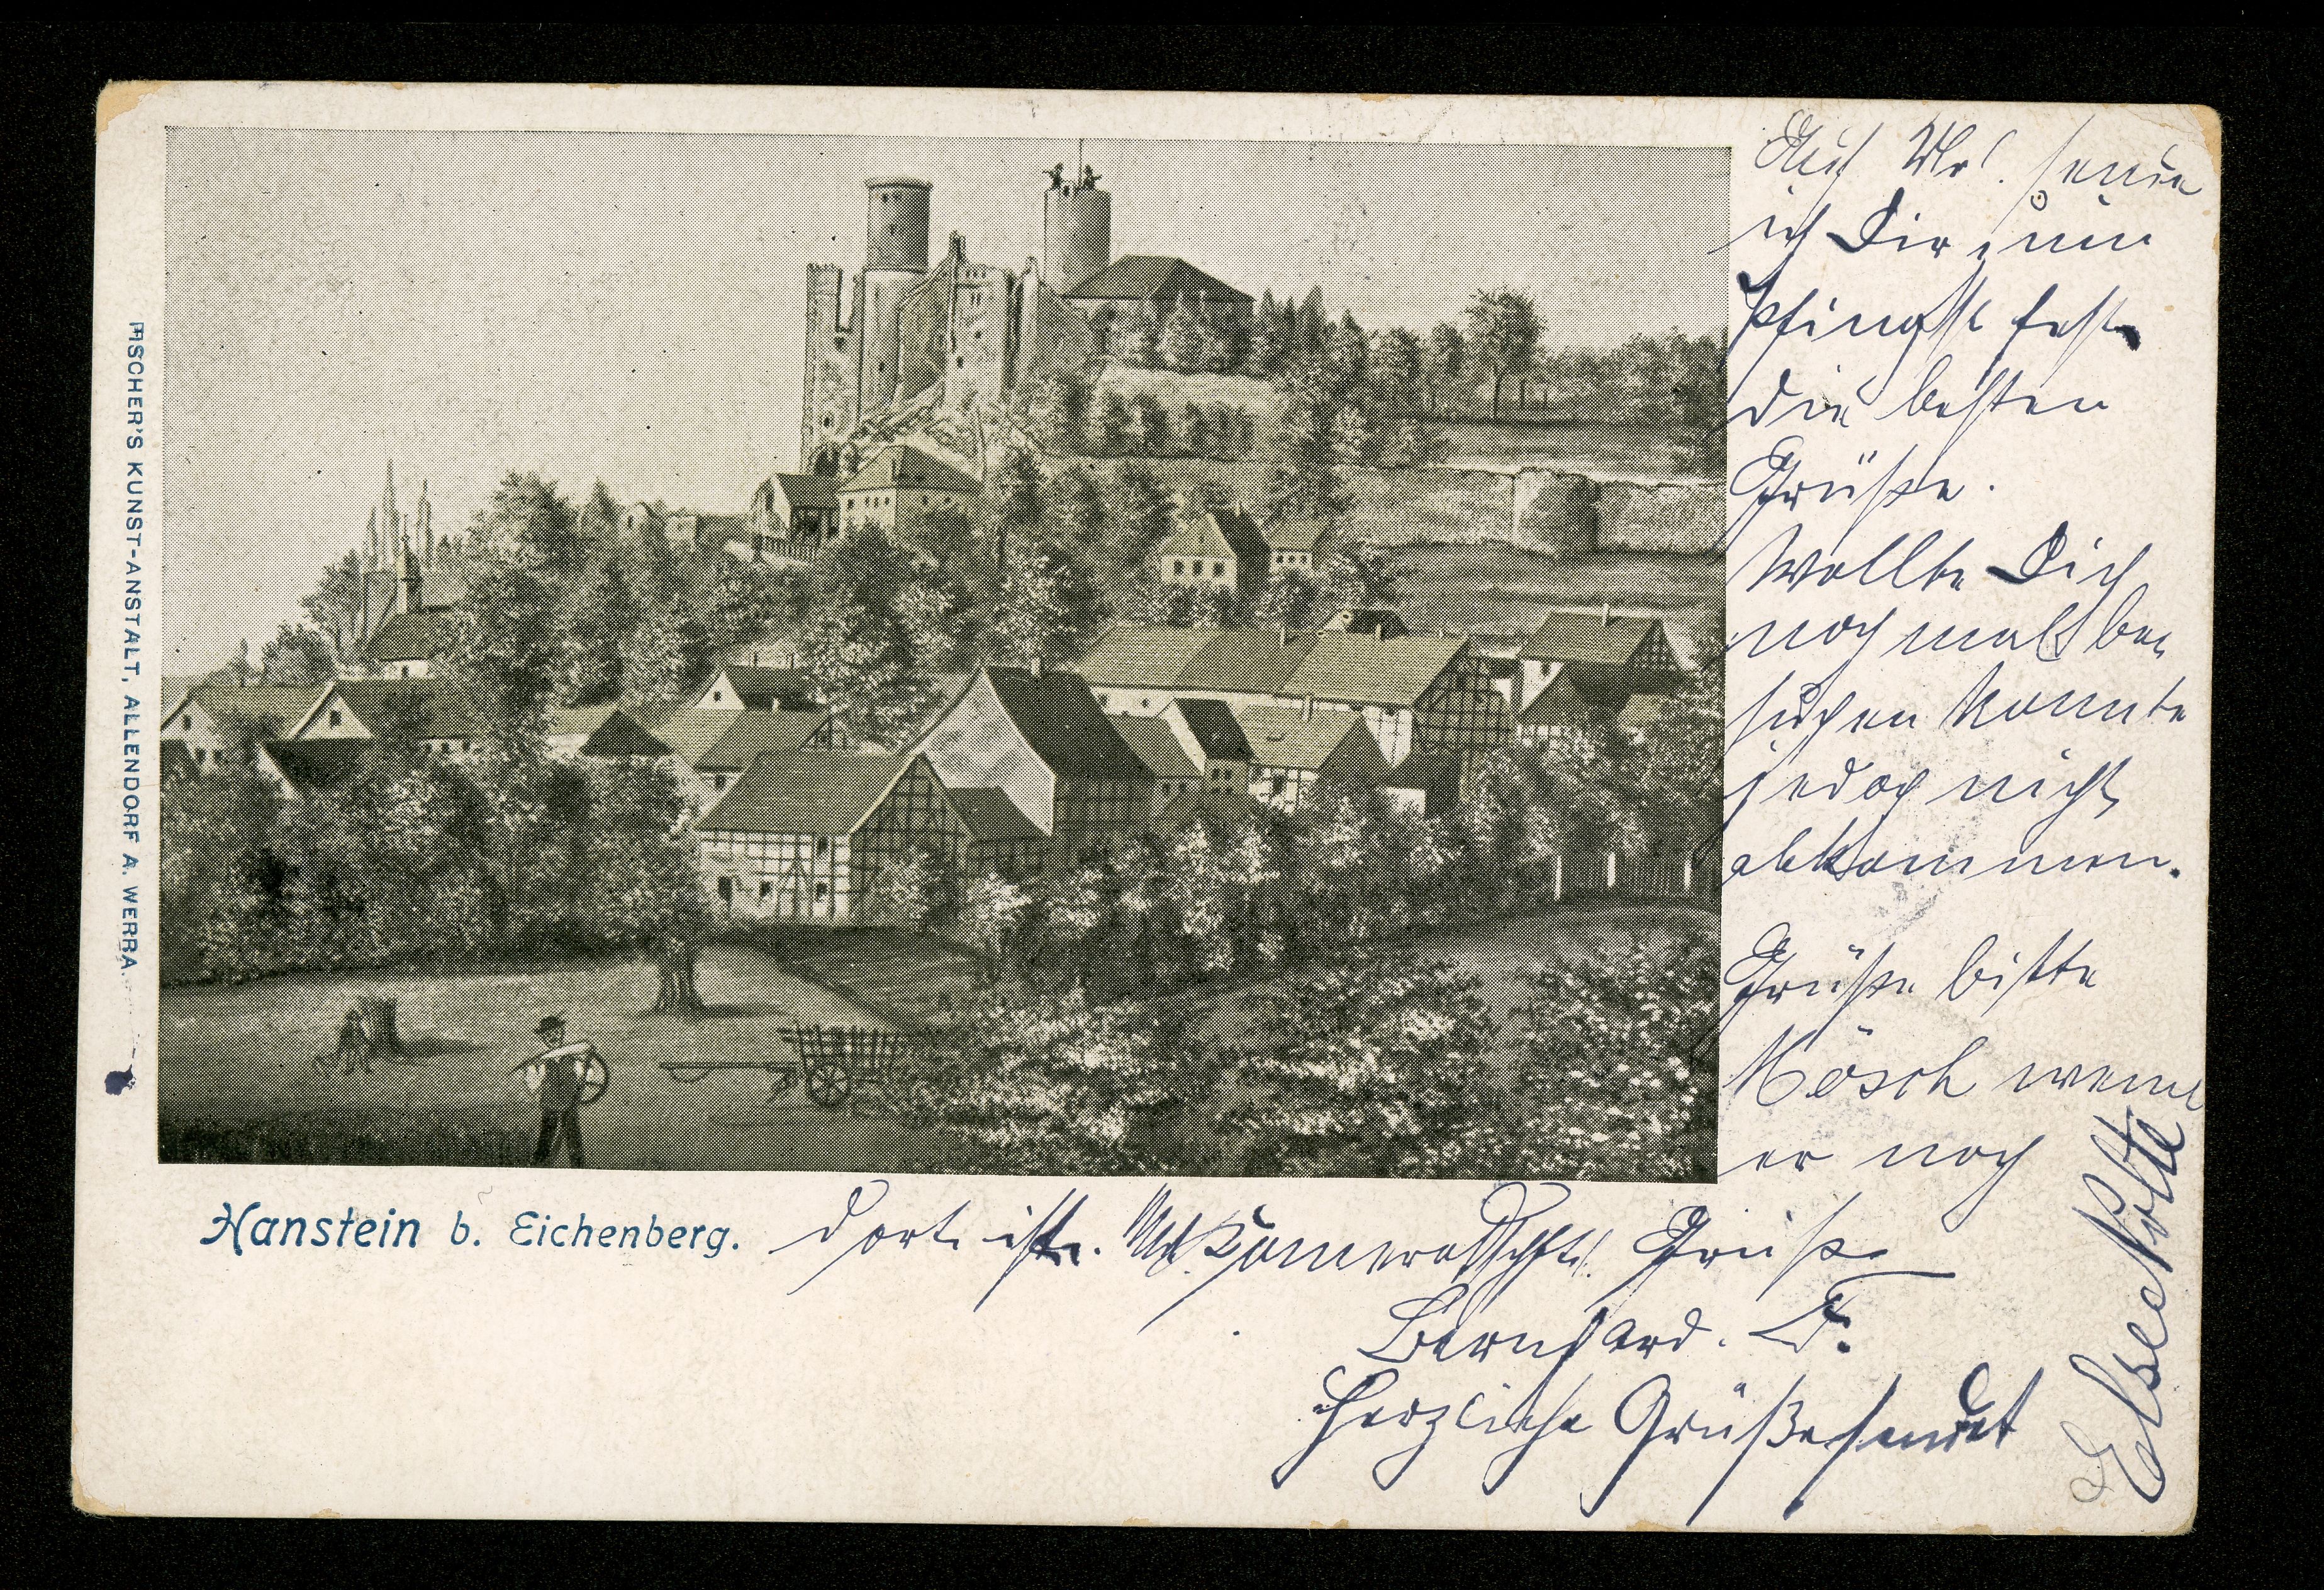 FISCHER'S KUNST-ANSTALT, ALLENDORF A. WERRA.
Hanstein b. Eichenberg.
sende
ich Dir zum
Pfingstfeste
die besten
Grüße.
Wollte Dich
noch mal be
suchen konnte
jedoch nicht
abkommen.
Grüße bitte
Kösch wenn
er noch
dort ist. Gruß
Bernhard. T.
Herzliche Grüße sendet
Else Nolte